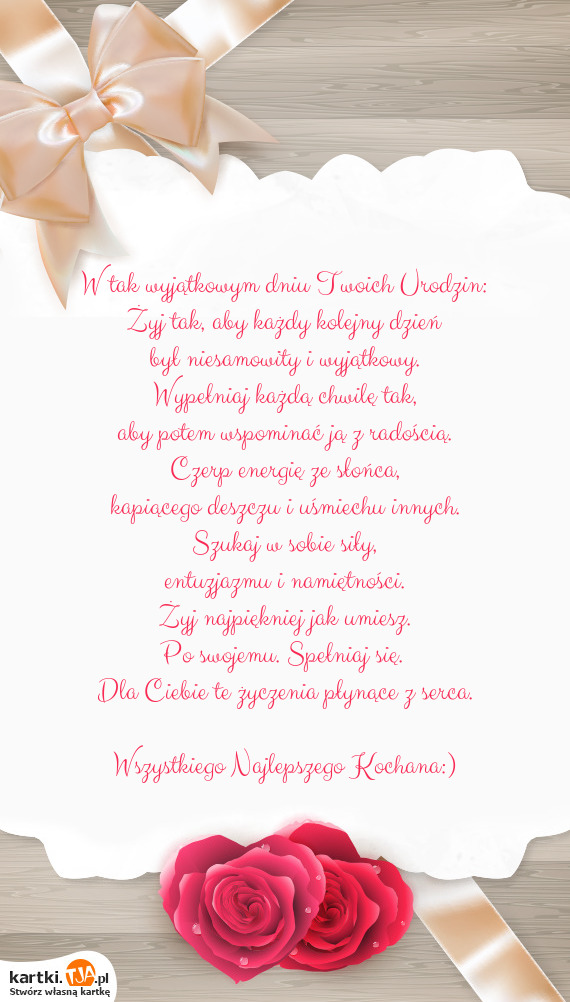 W tak wyjątkowym dniu Twoich Urodzin:
Żyj tak, aby każdy kolejny dzień
był niesamowity i wyjątkowy.
Wypełniaj każdą chwilę tak,
aby potem wspominać ją z radością.
Czerp energię ze słońca,
kapiącego deszczu i uśmiechu innych.
Szukaj w sobie siły,
entuzjazmu i namiętności.
Żyj najpiękniej jak umiesz.
Po swojemu. Spełniaj się.
Dla Ciebie te życzenia płynące z serca.
Wszystkiego Najlepszego Kochana:)
kartki.TJA.pl
Stwórz własną kartkę